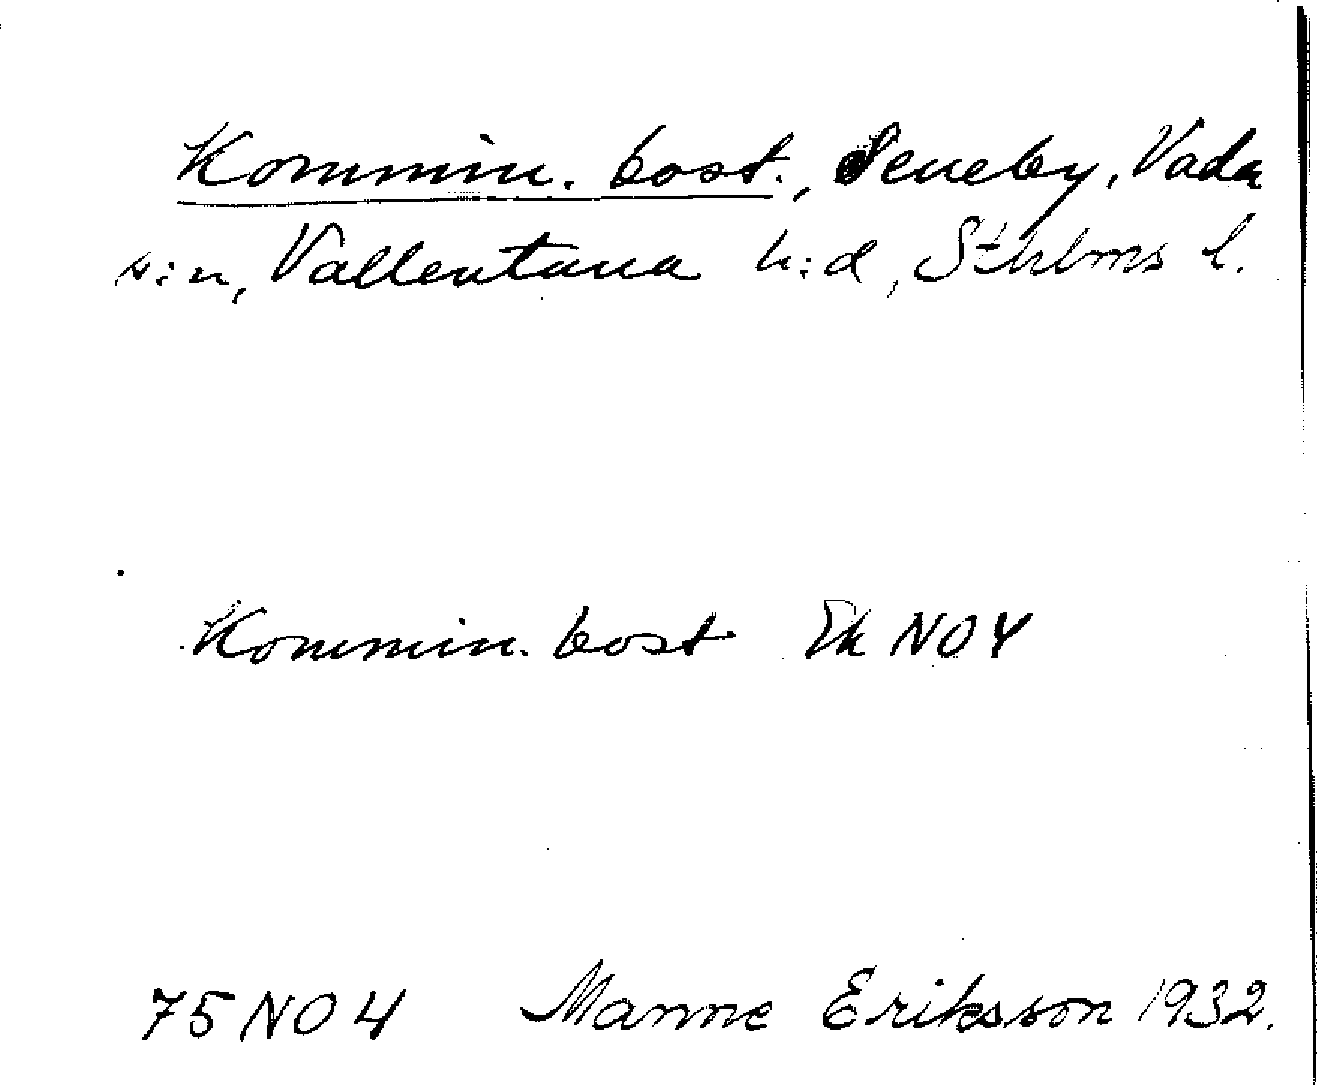 Kommin. bost., Seneby, Vada
s:n, Vallentuna h:d, Sthlms l.
Kommin. bost Ek NO4
75NO4 Manne Eriksson 1932.